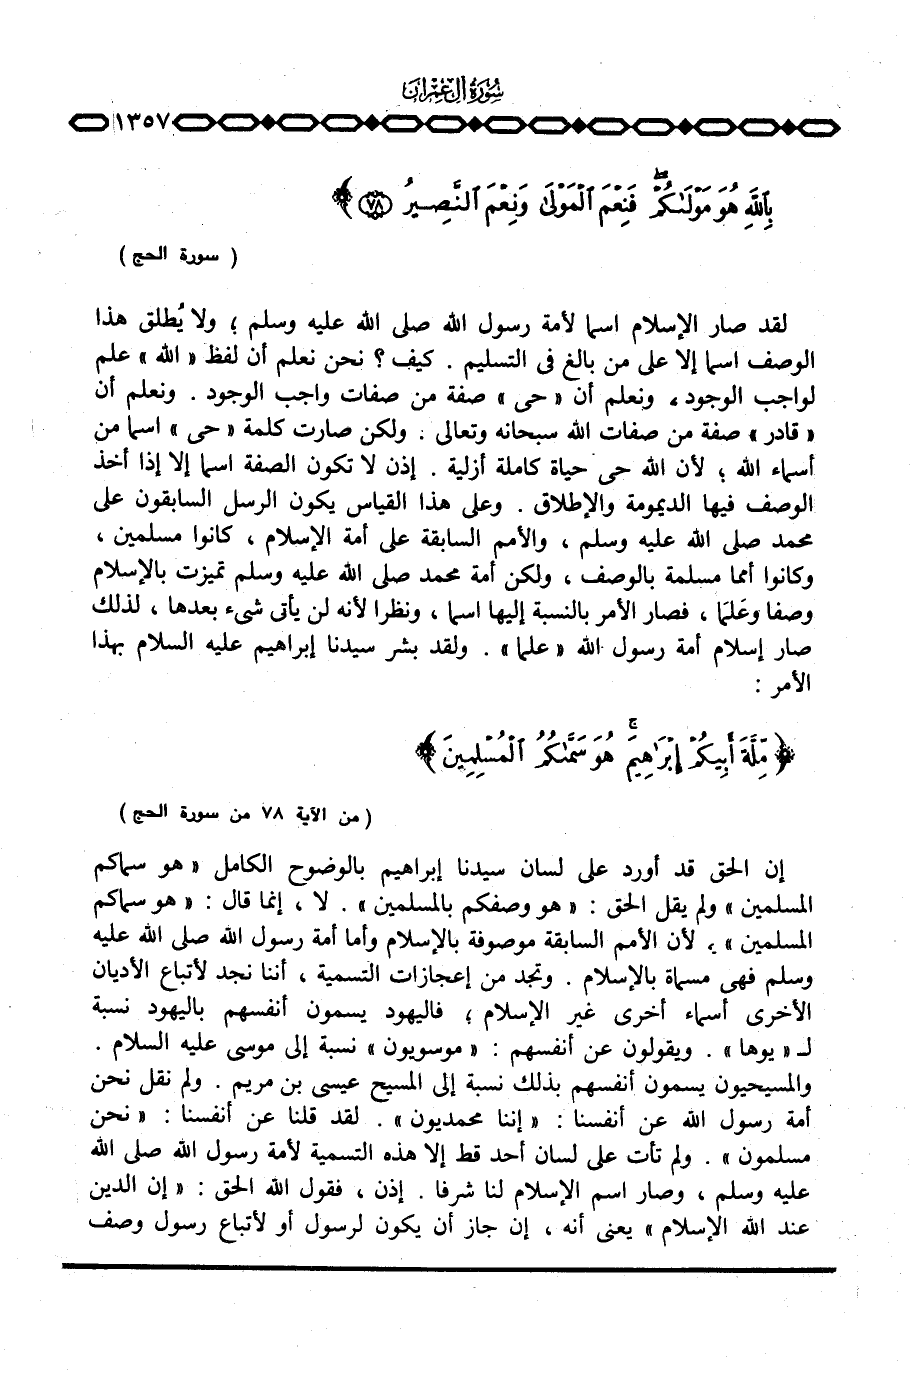 سُورَةُ آلِ عِمْرَانَ
١٣٥٧
بِاللَّهِ هُوَ مَوْلَىٰكُمْ ۖ فَنِعْمَ الْمَوْلَىٰ وَنِعْمَ النَّصِيرُ ﴿٧٨﴾
( سورة الحج )
لقد صار الإسلام اسما لأمة رسول الله صلى الله عليه وسلم ؛ ولا يُطلق هذا
الوصف اسما إلا على من بالغ فى التسليم . كيف ؟ نحن نعلم أن لفظ « الله » علم
لواجب الوجود ، ونعلم أن « حى » صفة من صفات واجب الوجود . ونعلم أن
« قادر » صفة من صفات الله سبحانه وتعالى . ولكن صارت كلمة « حى » اسما من
أسماء الله ؛ لأن الله حى حياة كاملة أزلية . إذن لا تكون الصفة اسما إلا إذا أخذ
الوصف فيها الديمومة والإطلاق . وعلى هذا القياس يكون الرسل السابقون على
محمد صلى الله عليه وسلم ، والأمم السابقة على أمة الإسلام ، كانوا مسلمين ،
وكانوا أمما مسلمة بالوصف ، ولكن أمة محمد صلى الله عليه وسلم تميزت بالإسلام
وصفا وعَلَما ، فصار الأمر بالنسبة إليها اسما ، ونظرا لأنه لن يأتى شىء بعدها ، لذلك
صار إسلام أمة رسول الله « علما » . ولقد بشر سيدنا إبراهيم عليه السلام بهذا
الأمر :
﴿ مِّلَّةَ أَبِيكُمْ إِبْرَٰهِيمَ ۚ هُوَ سَمَّىٰكُمُ الْمُسْلِمِينَ ﴾
( من الآية ٧٨ من سورة الحج )
إن الحق قد أورد على لسان سيدنا إبراهيم بالوضوح الكامل « هو سماكم
المسلمين » ولم يقل الحق : « هو وصفكم بالمسلمين » . لا ، إنما قال : « هو سماكم
المسلمين » ، لأن الأمم السابقة موصوفة بالإسلام وأما أمة رسول الله صلى الله عليه
وسلم فهى مسماة بالإسلام . وتجد من إعجازات التسمية ، أننا نجد لأتباع الأديان
الأخرى أسماء أخرى غير الإسلام ؛ فاليهود يسمون أنفسهم باليهود نسبة
لـ « يوها » . ويقولون عن أنفسهم : « موسويون » نسبة إلى موسى عليه السلام .
والمسيحيون يسمون أنفسهم بذلك نسبة إلى المسيح عيسى بن مريم . ولم نقل نحن
أمة رسول الله عن أنفسنا : « إننا محمديون » . لقد قلنا عن أنفسنا : « نحن
مسلمون » . ولم تأت على لسان أحد قط إلا هذه التسمية لأمة رسول الله صلى الله
عليه وسلم ، وصار اسم الإسلام لنا شرفا . إذن ، فقول الله الحق : « إن الدين
عند الله الإسلام » يعنى أنه ، إن جاز أن يكون لرسول أو لأتباع رسول وصف